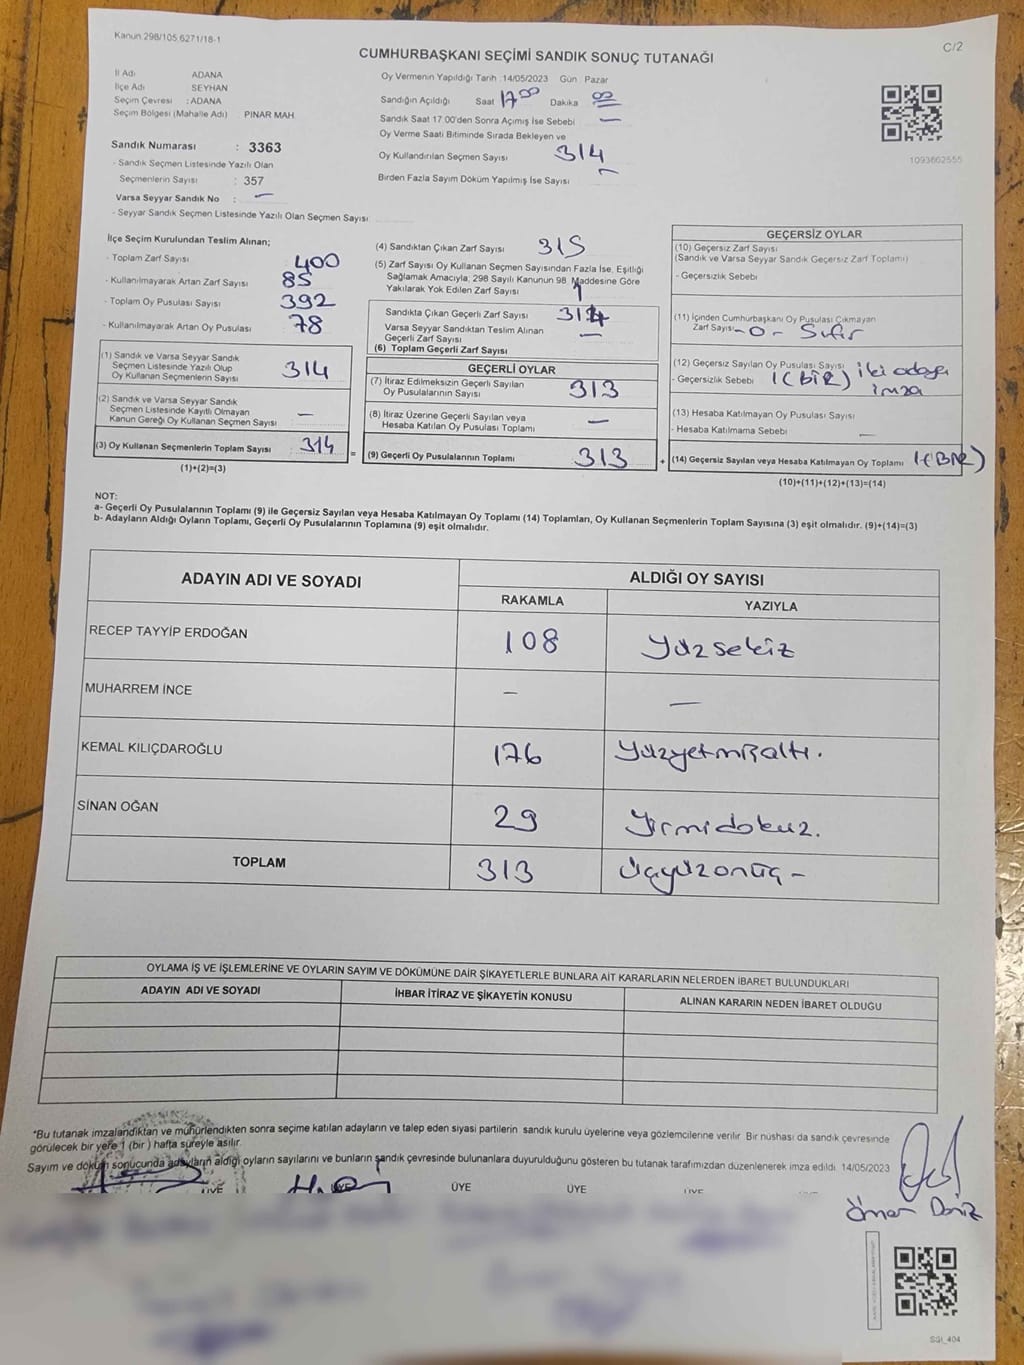 Kanun 298/105.6271/18-1
C/2
CUMHURBAŞKANI SEÇİMİ SANDIK SONUÇ TUTANAĞI
İl Adı ADANA
İlçe Adı SEYHAN
Seçim Çevresi : ADANA
Seçim Bölgesi (Mahalle Adı) PINAR MAH.
Sandık Numarası : 3363
- Sandık Seçmen Listesinde Yazılı Olan
Seçmenlerin Sayısı : 357
Varsa Seyyar Sandık No : –
- Seyyar Sandık Seçmen Listesinde Yazılı Olan Seçmen Sayısı
Oy Vermenin Yapıldığı Tarih :14/05/2023 Gün : Pazar
Sandığın Açıldığı Saat 17 00 Dakika 00
Sandık Saat 17.00'den Sonra Açımış İse Sebebi –
Oy Verme Saati Bitiminde Sırada Bekleyen ve
Oy Kullandırılan Seçmen Sayısı 314
Birden Fazla Sayım Döküm Yapılmış İse Sayısı –
1093602555
İlçe Seçim Kurulundan Teslim Alınan;
- Toplam Zarf Sayısı 400
- Kullanılmayarak Artan Zarf Sayısı 85
- Toplam Oy Pusulası Sayısı 392
- Kullanılmayarak Artan Oy Pusulası 78
(1) Sandık ve Varsa Seyyar Sandık
Seçmen Listesinde Yazılı Olup
Oy Kullanan Seçmenlerin Sayısı 314
(2) Sandık ve Varsa Seyyar Sandık
Seçmen Listesinde Kayıtlı Olmayan
Kanun Gereği Oy Kullanan Seçmen Sayısı –
(3) Oy Kullanan Seçmenlerin Toplam Sayısı 314 =
(1)+(2)=(3)
(4) Sandıktan Çıkan Zarf Sayısı 315
(5) Zarf Sayısı Oy Kullanan Seçmen Sayısından Fazla İse, Eşitliği
Sağlamak Amacıyla, 298 Sayılı Kanunun 98. Maddesine Göre
Yakılarak Yok Edilen Zarf Sayısı 1
Sandıkta Çıkan Geçerli Zarf Sayısı 314
Varsa Seyyar Sandıktan Teslim Alınan
Geçerli Zarf Sayısı –
(6) Toplam Geçerli Zarf Sayısı
GEÇERLİ OYLAR
(7) İtiraz Edilmeksizin Geçerli Sayılan
Oy Pusulalarının Sayısı 313
(8) İtiraz Üzerine Geçerli Sayılan veya
Hesaba Katılan Oy Pusulası Toplamı –
(9) Geçerli Oy Pusulalarının Toplamı 313 +
GEÇERSİZ OYLAR
(10) Geçersiz Zarf Sayısı
(Sandık ve Varsa Seyyar Sandık Geçersiz Zarf Toplamı)
- Geçersizlik Sebebi
(11) İçinden Cumhurbaşkanı Oy Pusulası Çıkmayan
Zarf Sayısı -0- Sıfır
(12) Geçersiz Sayılan Oy Pusulası Sayısı
- Geçersizlik Sebebi 1(BİR) iki adaya
imza
(13) Hesaba Katılmayan Oy Pusulası Sayısı
- Hesaba Katılmama Sebebi –
(14) Geçersiz Sayılan veya Hesaba Katılmayan Oy Toplamı 1(BİR)
(10)+(11)+(12)+(13)=(14)
NOT:
a- Geçerli Oy Pusulalarının Toplamı (9) ile Geçersiz Sayılan veya Hesaba Katılmayan Oy Toplamı (14) Toplamları, Oy Kullanan Seçmenlerin Toplam Sayısına (3) eşit olmalıdır. (9)+(14)=(3)
b- Adayların Aldığı Oyların Toplamı, Geçerli Oy Pusulalarının Toplamına (9) eşit olmalıdır.
ADAYIN ADI VE SOYADI ALDIĞI OY SAYISI
RAKAMLA YAZIYLA
RECEP TAYYİP ERDOĞAN 108 Yüzsekiz
MUHARREM İNCE – –
KEMAL KILIÇDAROĞLU 176 Yüzyetmişaltı.
SİNAN OĞAN 29 Yirmidokuz.
TOPLAM 313 üçyüzonüç-
OYLAMA İŞ VE İŞLEMLERİNE VE OYLARIN SAYIM VE DÖKÜMÜNE DAİR ŞİKAYETLERLE BUNLARA AİT KARARLARIN NELERDEN İBARET BULUNDUKLARI
ADAYIN ADI VE SOYADI İHBAR İTİRAZ VE ŞİKAYETİN KONUSU ALINAN KARARIN NEDEN İBARET OLDUĞU
*Bu tutanak imzalandıktan ve mühürlendikten sonra seçime katılan adayların ve talep eden siyasi partilerin sandık kurulu üyelerine veya gözlemcilerine verilir. Bir nüshası da sandık çevresinde
görülecek bir yere 1 (bir ) hafta süreyle asılır.
Sayım ve döküm sonucunda adayların aldığı oyların sayılarını ve bunların şandık çevresinde bulunanlara duyurulduğunu gösteren bu tutanak tarafımızdan düzenlenerek imza edildi. 14/05/2023
ÜYE ÜYE ÜYE ÜYE ÜYE ÜYE
Ömer Deniz
SSI_404